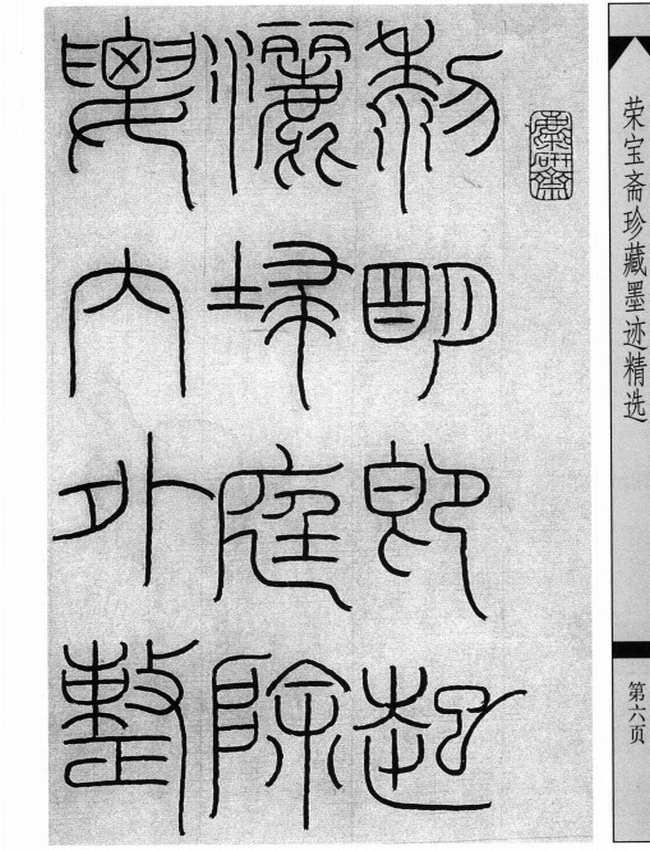 荣宝斋珍藏墨迹精选
第六页
麋研齋
黎明即起
灑埽庭除
要内外整